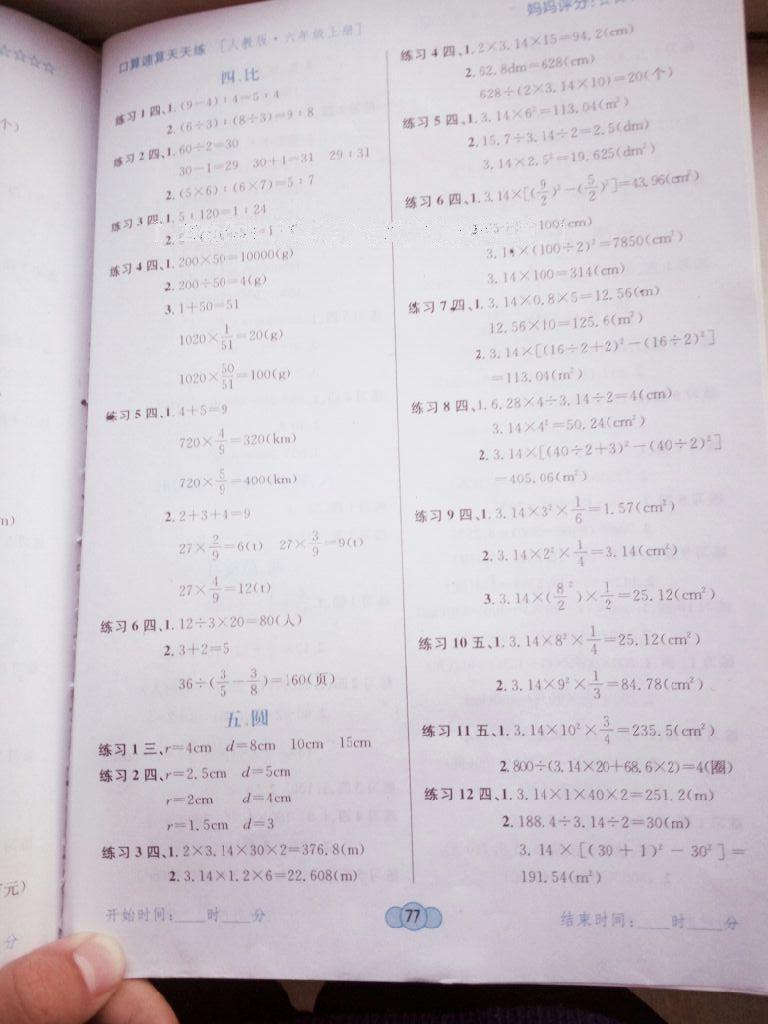 ☆☆☆☆
个)
m)
元)
分
口算速算天天练 [人教版·六年级上册]
四.比
练习1四、1.(9-4)∶4=5∶4
2.(6÷3)∶(8÷3)=9∶8
练习2四、1.60÷2=30
30-1=29 30+1=31 29∶31
2.(5×6)∶(6×7)=5∶7
练习3四、1.5∶120=1∶24
2.
练习4四、1.200×50=10000(g)
2.200÷50=4(g)
3.1+50=51
1020×1/51=20(g)
1020×50/51=100(g)
练习5四、1.4+5=9
720×4/9=320(km)
720×5/9=400(km)
2.2+3+4=9
27×2/9=6(t) 27×3/9=9(t)
27×4/9=12(t)
练习6四、1.12÷3×20=80(人)
2.3+2=5
36÷(3/5-3/8)=160(页)
五.圆
练习1三、r=4cm d=8cm 10cm 15cm
练习2四、r=2.5cm d=5cm
r=2cm d=4cm
r=1.5cm d=3
练习3四、1.2×3.14×30×2=376.8(m)
2.3.14×1.2×6=22.608(m)
妈妈评分:☆☆
练习4四、1.2×3.14×15=94.2(cm)
2.62.8dm=628(cm)
628÷(2×3.14×10)=20(个)
练习5四、1.3.14×6²=113.04(m²)
2.15.7÷3.14÷2=2.5(dm)
3.14×2.5²=19.625(dm²)
练习6四、1.3.14×[(9/2)²-(5/2)²]=43.96(cm²)
=100(cm)
3.14×(100÷2)²=7850(cm²)
3.14×100=314(cm)
练习7四、1.3.14×0.8×5=12.56(m)
12.56×10=125.6(m²)
2.3.14×[(16÷2+2)²-(16÷2)²]
=113.04(m²)
练习8四、1.6.28×4÷3.14÷2=4(cm)
3.14×4²=50.24(cm²)
2.3.14×[(40÷2+3)²-(40÷2)²]
=405.06(m²)
练习9四、1.3.14×3²×1/6=1.57(cm²)
2.3.14×2²×1/4=3.14(cm²)
3.3.14×(8/2²)×1/2=25.12(cm²)
练习10五、1.3.14×8²×1/4=25.12(cm²)
2.3.14×9²×1/3=84.78(cm²)
练习11五、1.3.14×10²×3/4=235.5(cm²)
2.800÷(3.14×20+68.6×2)=4(圈)
练习12四、1.3.14×1×40×2=251.2(m)
2.188.4÷3.14÷2=30(m)
3.14×[(30+1)²-30²]=
191.54(m²)
开始时间:___时___分
77
结束时间:___时___分